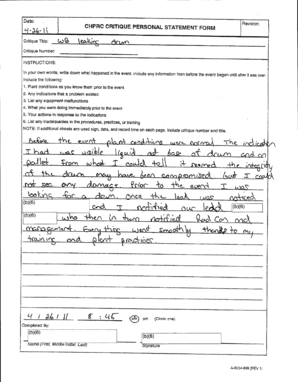 Date:
4-26-11
CHPRC CRITIQUE PERSONAL STATEMENT FORM
Revision:
Critique Title: WB leaking drum
Critique Number:
INSTRUCTIONS:
In your own words, write down what happened in the event. Include any information from before the event began until after it was over.
Include the following:
1. Plant conditions as you know them prior to the event
2. Any indications that a problem existed
3. List any equipment malfunctions
4. What you were doing immediately prior to the event
5. Your actions in response to the indications
6. List any inadequacies in the procedures, practices, or training
NOTE: If additional sheets are used sign, date, and record time on each page. Include critique number and title.
Before the event plant conditions were normal. The indication
I had was visible liquid at base of drum and on
pallet From what I could tell it seemed the integrity
of the drum may have been compromised but I could
not see any damage. Prior to the event I was
looking for a drum. once the leak was noticed
(b)(6) and I notified our lead (b)(6)
(b)(6) who then in turn notified Rad Con and
management. Everything went smoothly thanks to my
training and plant practices.
4 / 26 / 11 8 : 45 am pm (Circle one)
Completed By:
(b)(6)
(b)(6)
Name (First, Middle Initial, Last)
Signature